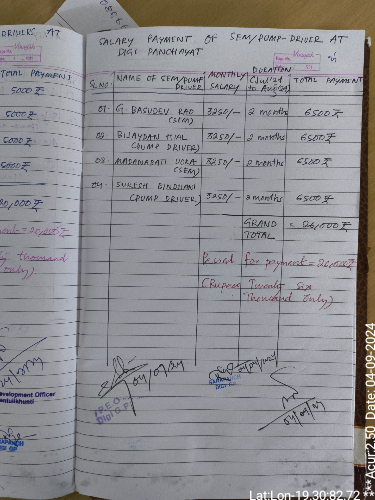 DRIVERS, AT
TOTAL PAYMENT
5000₹
5000₹
5000₹
5000₹
20,000₹
= 20,000₹
thousand
only)
Development Officer
SALARY PAYMENT OF SEM/PUMP-DRIVER AT
DIGI PANCHAYAT
SL.NO. NAME OF SEM/PUMP DRIVER MONTHLY SALARY DURATION (Jul'24 to Aug'24) TOTAL PAYMENT
01. G. BASUDEV RAO (SEM) 3250/- 2 months 6500₹
02. (PUMP DRIVER) 3250/- 2 months 6500₹
03. (SEM) 3250/- 2 months 6500₹
04. SURESH (PUMP DRIVER) 3250/- 2 months 6500₹
GRAND TOTAL = 26,000₹
Passed for payment = 26,000₹
(Rupees Twenty Six
Thousand Only)
P.E.O
DIGI G.P
SARPANCH
DIGI GP
Lat:Lon-19.30:82.72
***Acur:2.50 Date: 04-09-2024